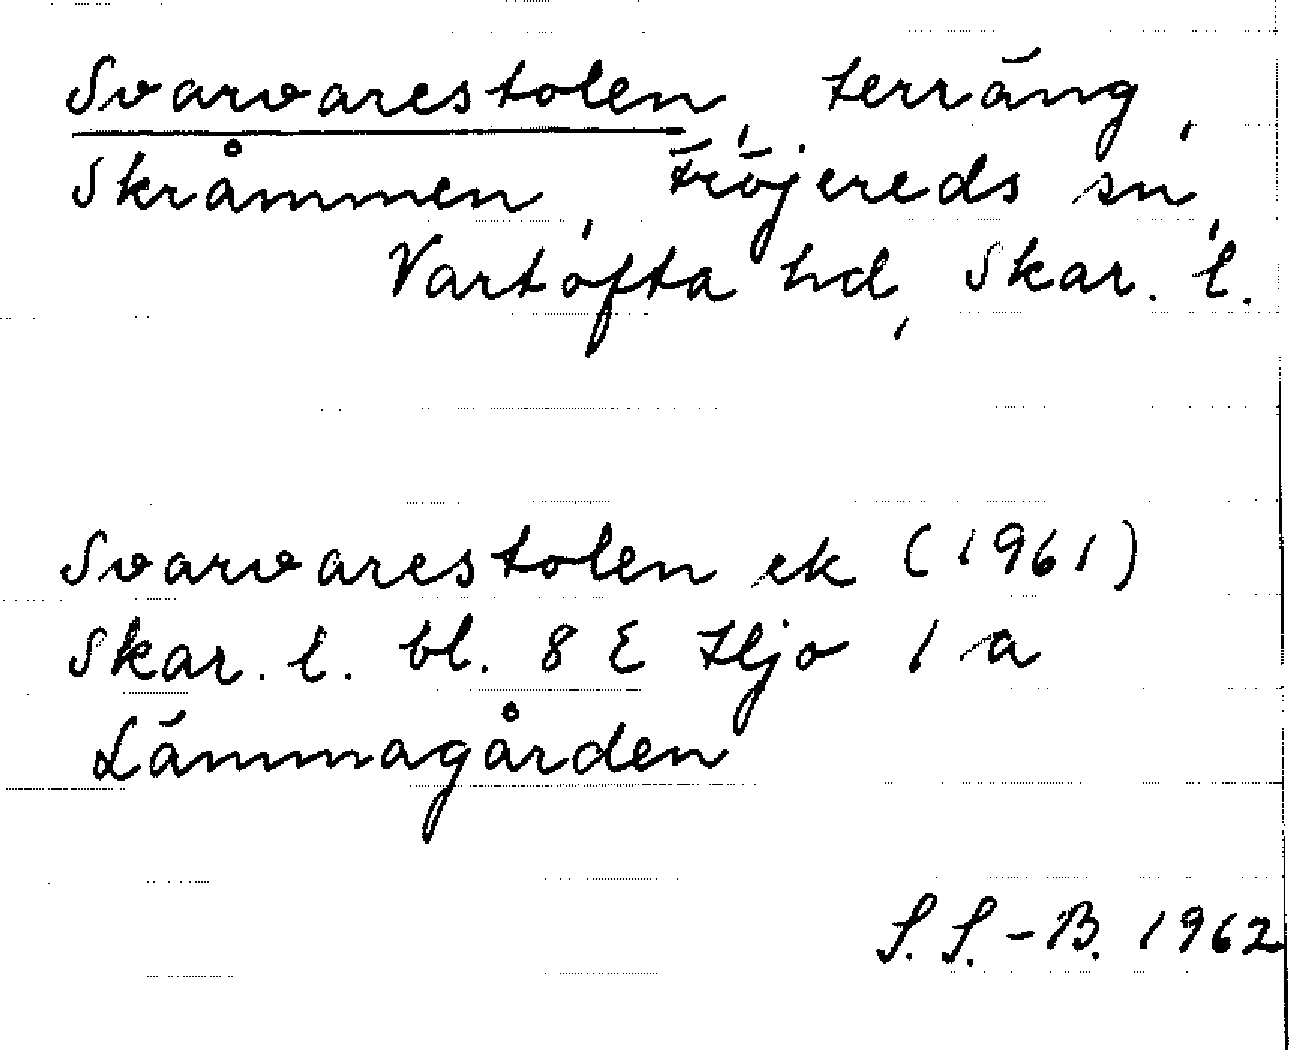 Svarvarestolen, terräng,
Skråmmen, Fröjereds sn,
Vartofta hd, Skar. l.
Svarvarestolen ek (1961)
Skar. l. bl. 8 E Hjo 1 a
Lämmagården
S. S.-B. 1962